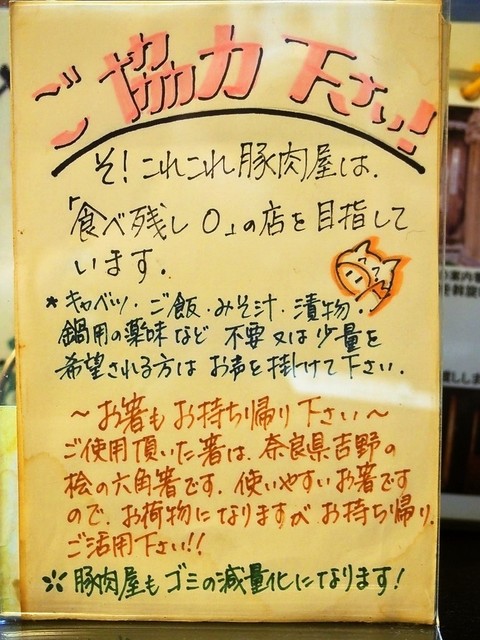 ご協力下さい!
そ!これこれ豚肉屋は、
「食べ残し0」の店を目指して
います。
*キャベツ・ご飯・みそ汁・漬物・
鍋用の薬味など 不要又は少量を
希望される方は お声を掛けて下さい。
〜お箸もお持ち帰り下さい〜
ご使用頂いた箸は、奈良県吉野の
桧の六角箸です。使いやすいお箸です
ので、お荷物になりますがお持ち帰り、
ご活用下さい!!
※豚肉屋もゴミの減量化になります!